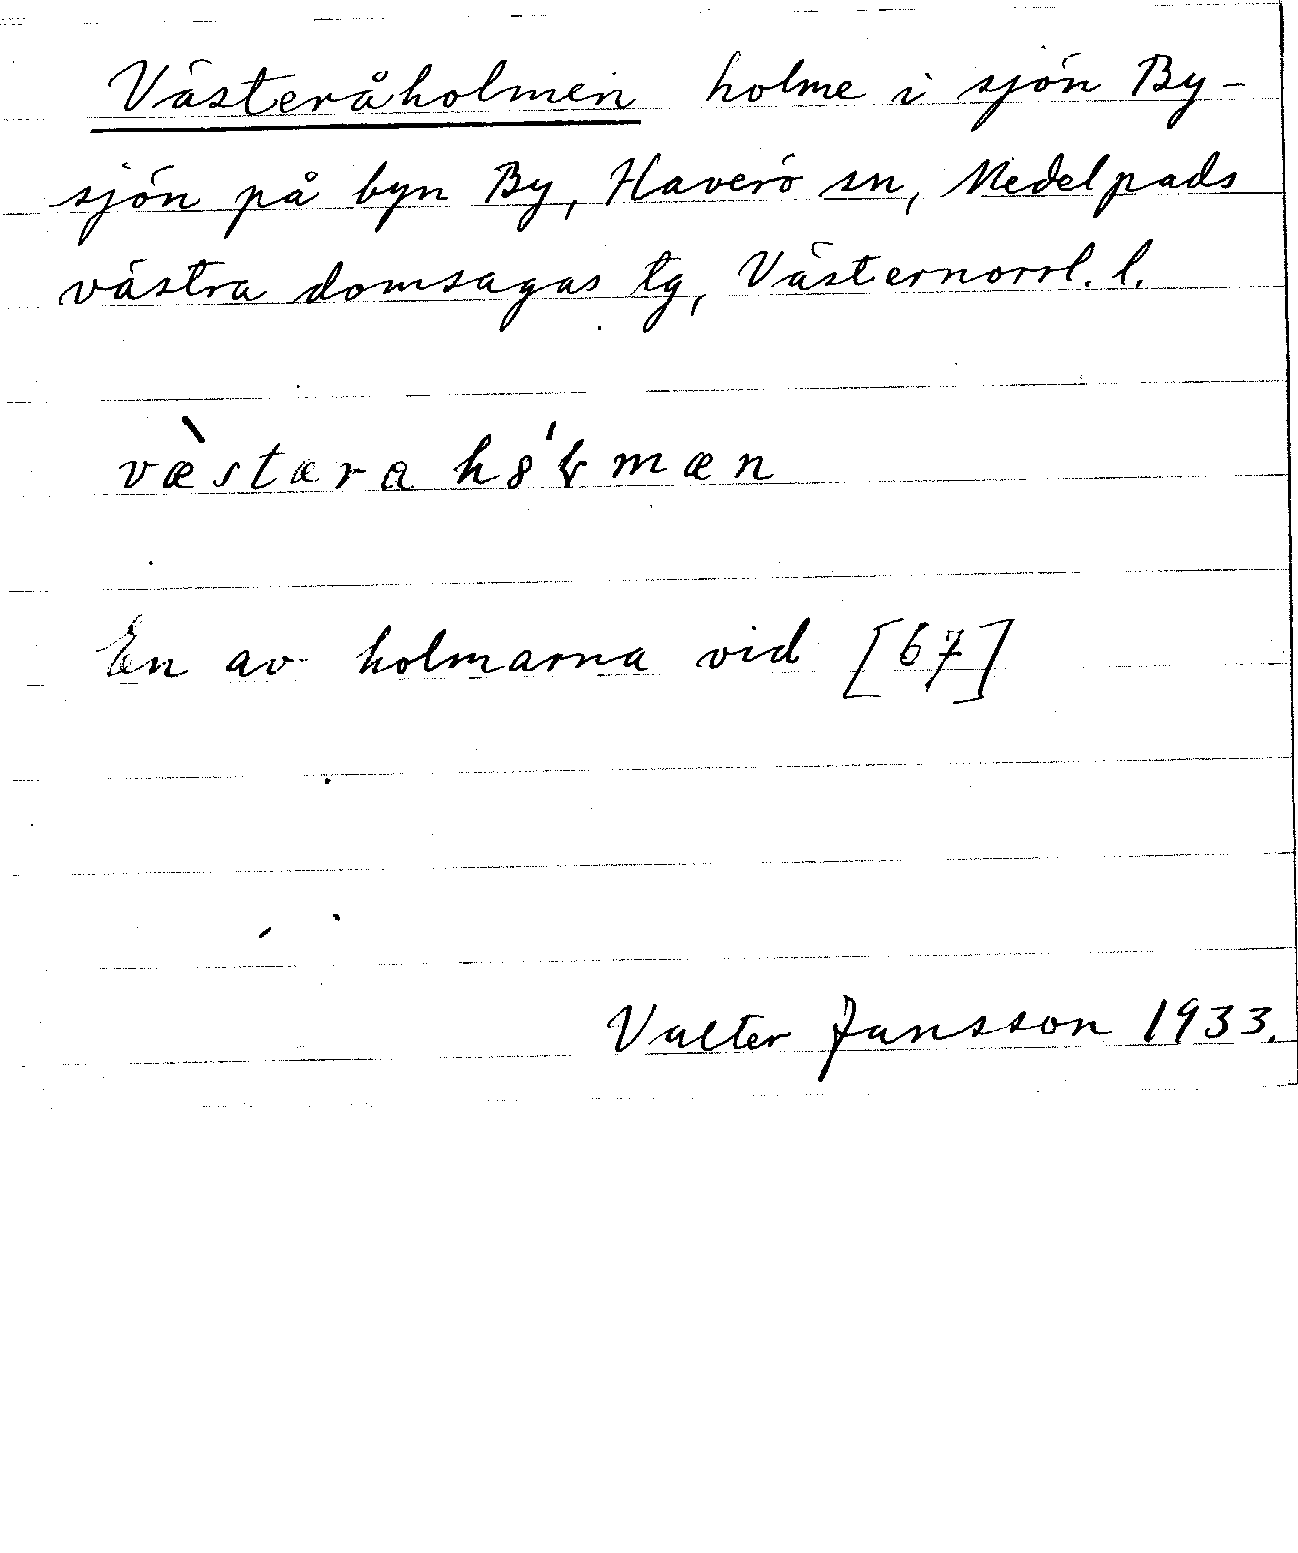 Västeråholmen holme i sjön By-
sjön på byn By, Haverö sn, Medelpads
västra domsagas tg, Västernorrl. l.
væ̀stærahɞ́ɽmæn
En av holmarna vid [67]
Valter Jansson 1933.